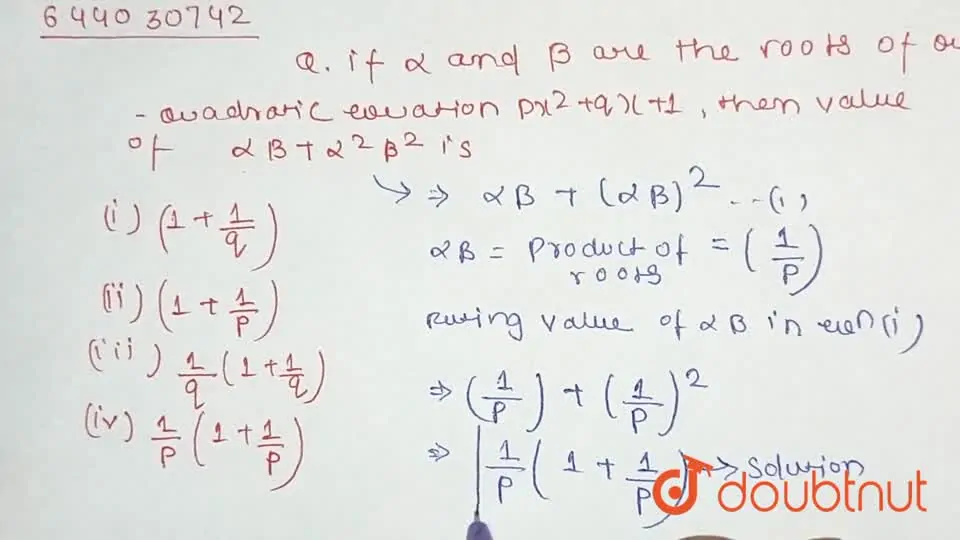 6 44 0 30742
Q. if α and β are the roots of
quadratic equation px²+qx+1, then value
of αβ+α²β² is
(i) (1+1/q)
(ii) (1+1/p)
(iii) 1/q(1+1/q)
(iv) 1/p(1+1/p)
⇒ αβ + (αβ)² --(i)
αβ = Product of roots = (1/p)
value of αβ in eqn(i)
⇒ (1/p) + (1/p)²
⇒ 1/p(1+1/p) → Solution
doubtnut